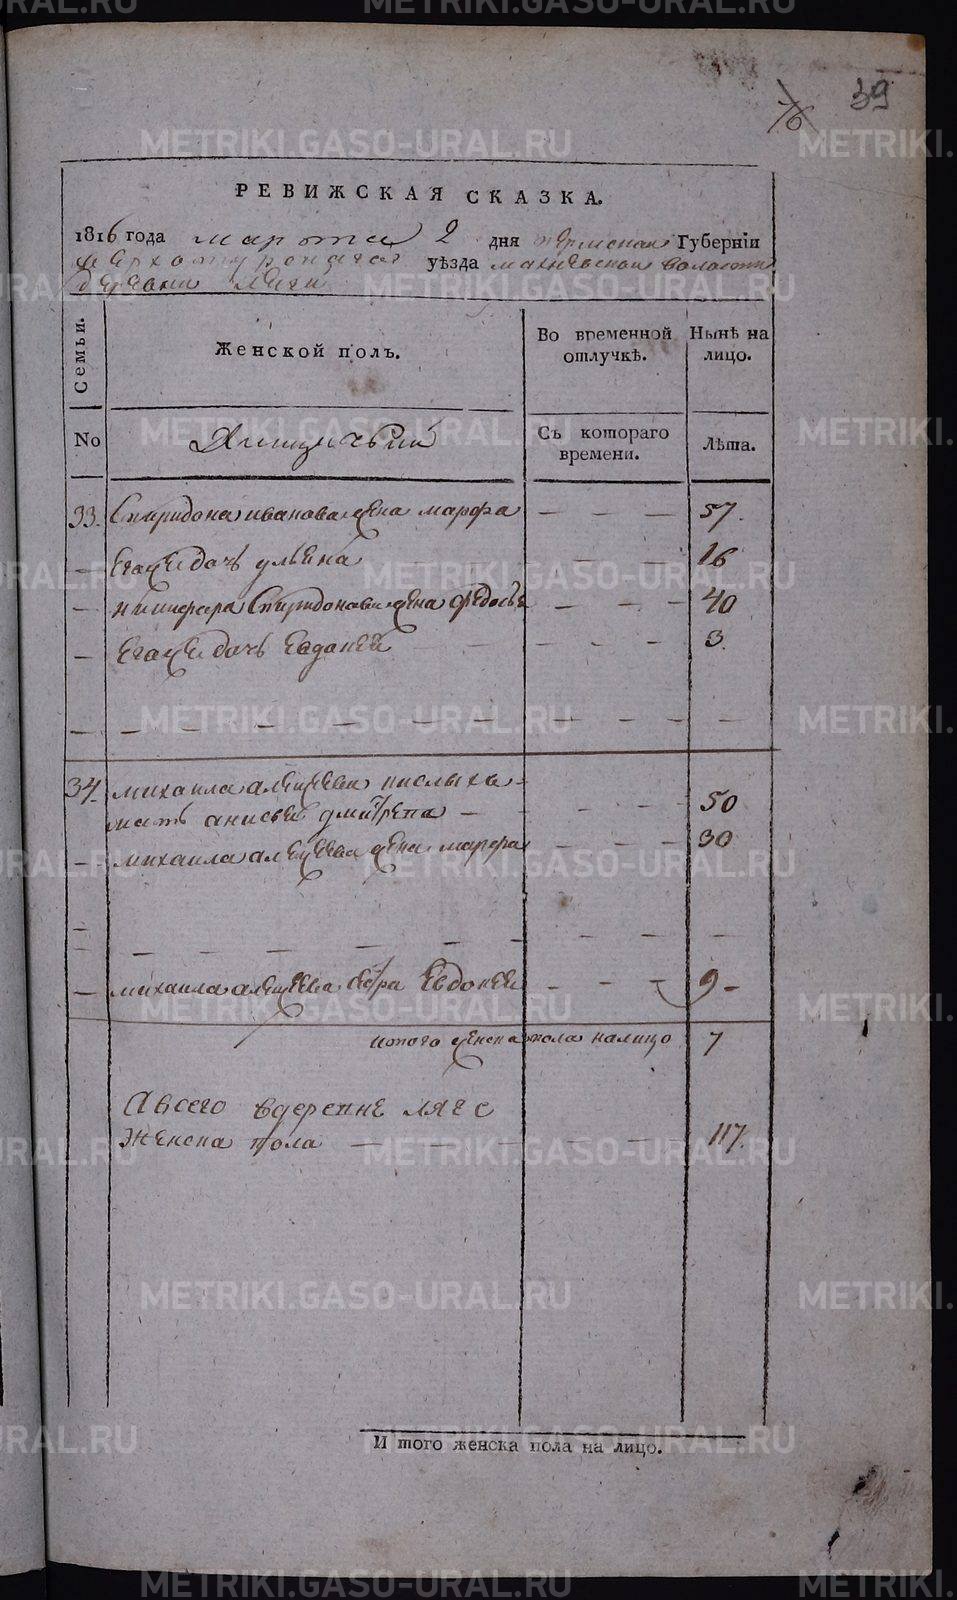 76 39
РЕВИЖСКАЯ СКАЗКА.
1816 года марта 2 дня пермской Губерніи
верхотурскаго уѣзда махневской волости
деревни Ляги
Семьи. Женской полъ. Во временной отлучкѣ. Нынѣ на лицо.
No Съ котораго времени. Лѣта.
33. Спиридона иванова жена марфа — — — 57.
— Егожъ дочь ульяна — — — 16
— никифора Спиридонова жена федосья — — — 40
— Егожъ дочь Евдокея — — — 3.
34. михаила алексеева кислыхъ
мать анисья дмитрева — — — 50
— михаила алексеева жена марфа — — — 30
— михаила алексеева сестра Евдокея — — — 9
итого женска пола налицо 7
А всего вдеревне ляге
женска пола — — — 117.
И того женска пола на лицо.
METRIKI.GASO-URAL.RU